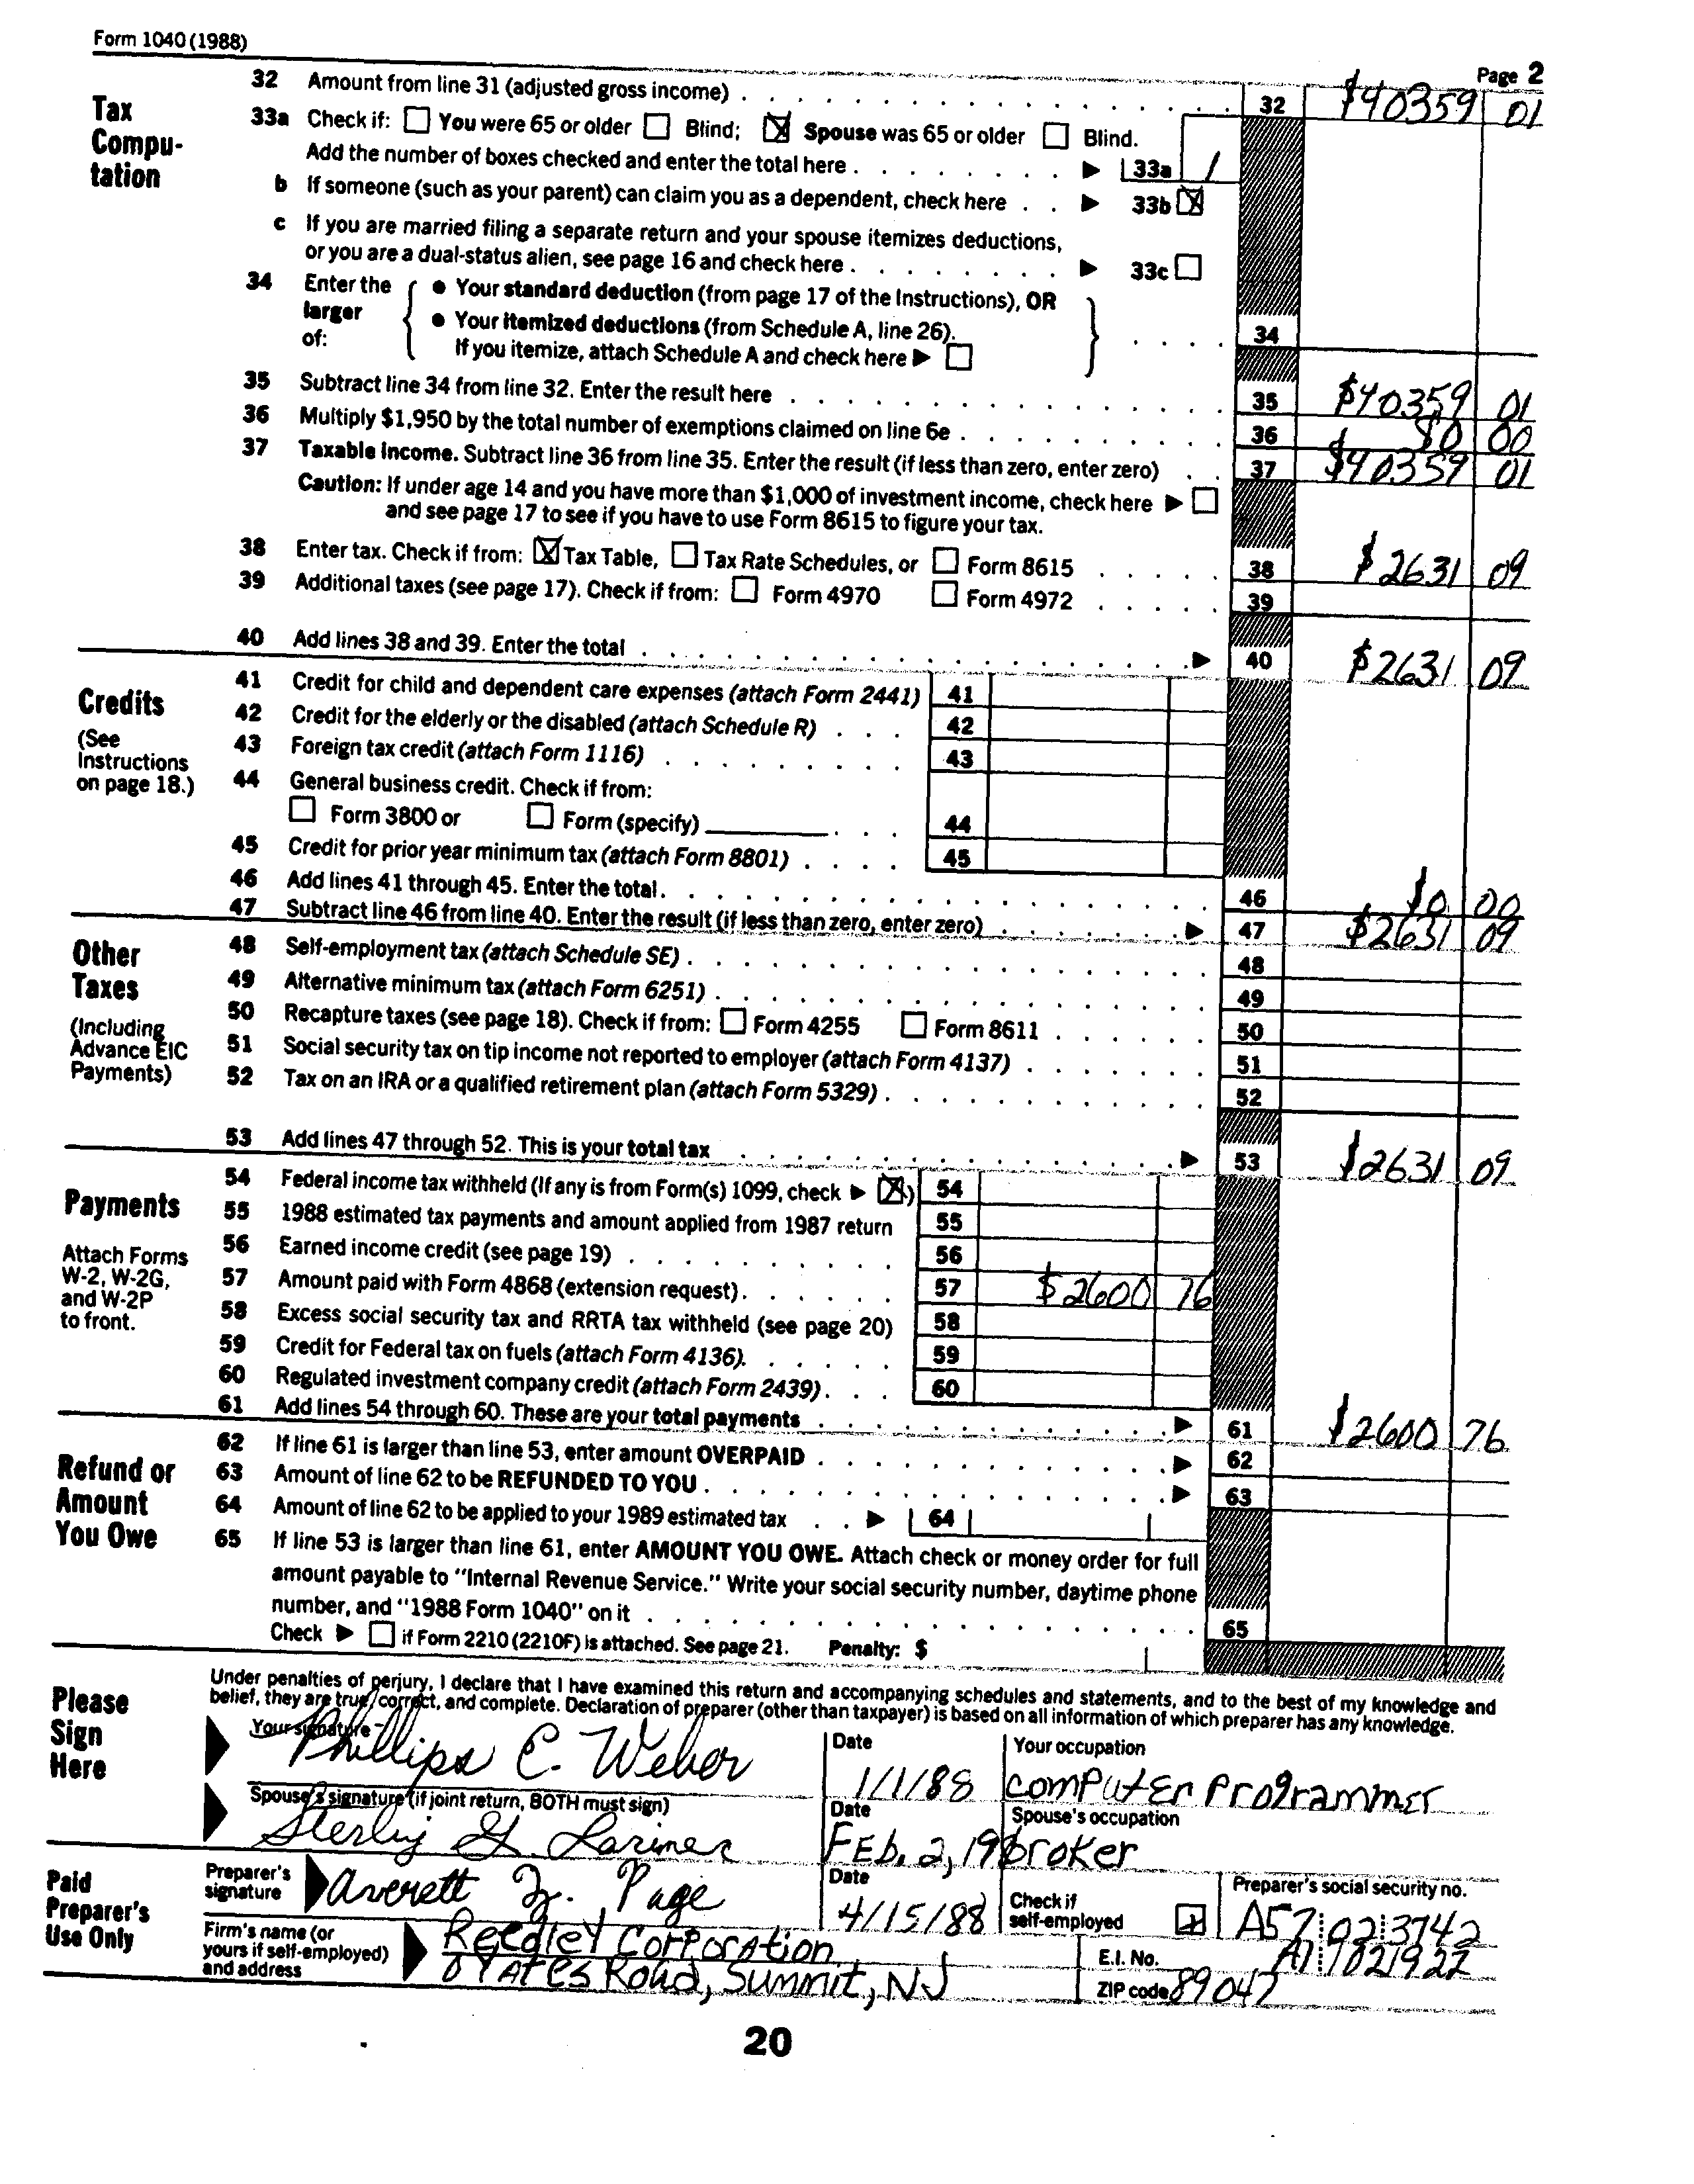 Form 1040 (1988)
Page 2
Tax Compu-tation
32 Amount from line 31 (adjusted gross income) 32 $40359 01
33a Check if: You were 65 or older Blind; Spouse was 65 or older Blind.
Add the number of boxes checked and enter the total here 33a 1
b If someone (such as your parent) can claim you as a dependent, check here 33b
c If you are married filing a separate return and your spouse itemizes deductions,
or you are a dual-status alien, see page 16 and check here 33c
34 Enter the larger of:
• Your standard deduction (from page 17 of the Instructions), OR
• Your itemized deductions (from Schedule A, line 26).
If you itemize, attach Schedule A and check here 34
35 Subtract line 34 from line 32. Enter the result here 35 $40359 01
36 Multiply $1,950 by the total number of exemptions claimed on line 6e 36 $0 00
37 Taxable income. Subtract line 36 from line 35. Enter the result (if less than zero, enter zero) 37 $40359 01
Caution: If under age 14 and you have more than $1,000 of investment income, check here
and see page 17 to see if you have to use Form 8615 to figure your tax.
38 Enter tax. Check if from: Tax Table, Tax Rate Schedules, or Form 8615 38 $2631 09
39 Additional taxes (see page 17). Check if from: Form 4970 Form 4972 39
40 Add lines 38 and 39. Enter the total 40 $2631 09
Credits
(See Instructions on page 18.)
41 Credit for child and dependent care expenses (attach Form 2441) 41
42 Credit for the elderly or the disabled (attach Schedule R) 42
43 Foreign tax credit (attach Form 1116) 43
44 General business credit. Check if from:
Form 3800 or Form (specify) 44
45 Credit for prior year minimum tax (attach Form 8801) 45
46 Add lines 41 through 45. Enter the total. 46 $0 00
47 Subtract line 46 from line 40. Enter the result (if less than zero, enter zero) 47 $2631 09
Other Taxes
(Including Advance EIC Payments)
48 Self-employment tax (attach Schedule SE) 48
49 Alternative minimum tax (attach Form 6251) 49
50 Recapture taxes (see page 18). Check if from: Form 4255 Form 8611 50
51 Social security tax on tip income not reported to employer (attach Form 4137) 51
52 Tax on an IRA or a qualified retirement plan (attach Form 5329) 52
53 Add lines 47 through 52. This is your total tax 53 $2631 09
Payments
Attach Forms W-2, W-2G, and W-2P to front.
54 Federal income tax withheld (If any is from Form(s) 1099, check ) 54
55 1988 estimated tax payments and amount applied from 1987 return 55
56 Earned income credit (see page 19) 56
57 Amount paid with Form 4868 (extension request) 57 $2600 76
58 Excess social security tax and RRTA tax withheld (see page 20) 58
59 Credit for Federal tax on fuels (attach Form 4136). 59
60 Regulated investment company credit (attach Form 2439) 60
61 Add lines 54 through 60. These are your total payments 61 $2600 76
Refund or Amount You Owe
62 If line 61 is larger than line 53, enter amount OVERPAID 62
63 Amount of line 62 to be REFUNDED TO YOU 63
64 Amount of line 62 to be applied to your 1989 estimated tax 64
65 If line 53 is larger than line 61, enter AMOUNT YOU OWE. Attach check or money order for full
amount payable to "Internal Revenue Service." Write your social security number, daytime phone
number, and "1988 Form 1040" on it 65
Check if Form 2210 (2210F) is attached. See page 21. Penalty: $
Please Sign Here
Under penalties of perjury, I declare that I have examined this return and accompanying schedules and statements, and to the best of my knowledge and
belief, they are true, correct, and complete. Declaration of preparer (other than taxpayer) is based on all information of which preparer has any knowledge.
Your signature Date Your occupation
Phillips C. Weber 1/1/88 computer programmer
Spouse's signature (if joint return, BOTH must sign) Date Spouse's occupation
Sterling G. Lariner FEb. 2, 198 broker
Paid Preparer's Use Only
Preparer's signature Averett Z. Page Date 4/15/88 Check if self-employed Preparer's social security no. A57 02 3742
Firm's name (or yours if self-employed) and address Reedley Corporation E.I. No. A1 1021922
Yates Road, Summit, NJ ZIP code 89047
20